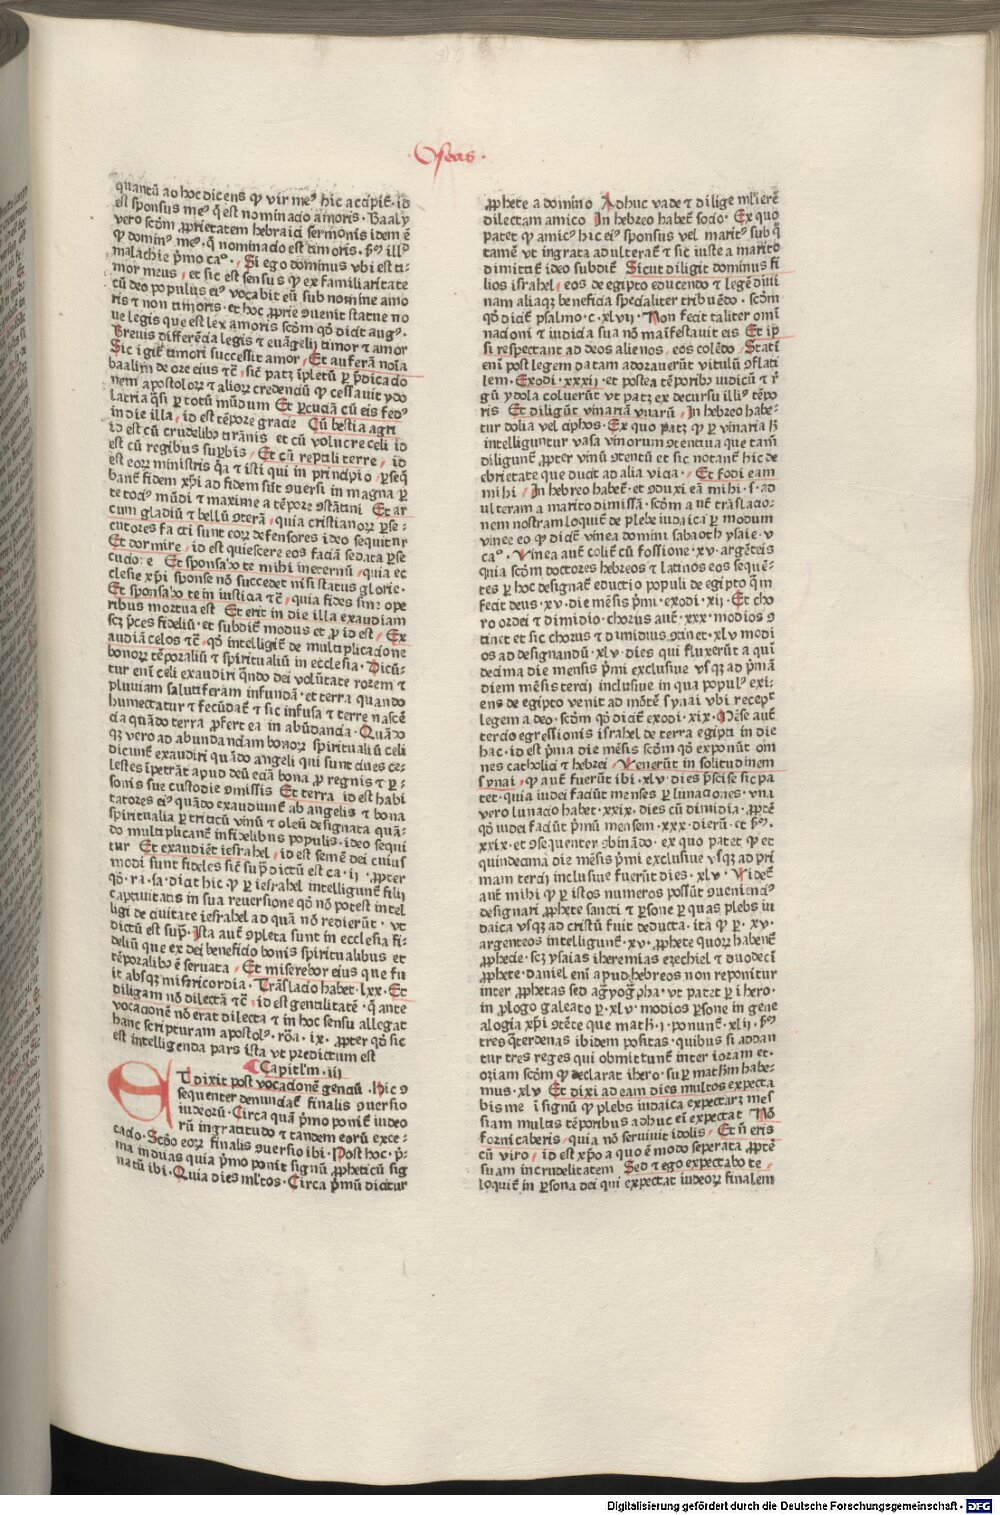 Oseas
quantū ad hoc dicens ꝙ vir meꝰ hic accipit̄. id
est sponsus meꝰ q̄ est nominacio amoris. Baaly
vero scd̄m ꝓprietatem hebraici sermonis idem ē
ꝙ dominꝰ meꝰ. q̄ nominacio est timoris. sꝫ illd̄
malachie p̄mo caº. Si ego dominus vbi est ti-
mor meus, et sic est sensus ꝙ ex familiaritate
cū deo populus eiꝰ vocabit eū sub nomine amo
ris ⁊ non timoris. et hoc ꝓprie ꝯuenit statue no
ue legis que est lex amoris scd̄m qd̄ dicit augꝰ.
Breuis differēcia legis ⁊ euāgelij timor ⁊ amor
Sic igit̄ timori successit amor, Et auferā noīa
baalim de ore eius ⁊c̄, sic̄ patꝫ īpletū ꝑ p̄dicacio
nem apostoloꝝ ⁊ alioꝝ credenciū ꝙ cessauit ydo
latria q̄si ꝑ totū mūdum Et ꝑcuciā cū eis fedꝰ
in die illa, id est tēpore gracie Cū bestia agri
id est cū crudelibꝰ tirānis et cū volucre celi id
est cū regibus supbis, Et cū reptili terre, id
est eoꝝ ministris q̄a ⁊ isti qui in principio ꝑseq̄
bant̄ fidem xp̄i ad fidem sūt ꝯuersi in magna ꝑ
te tociꝰ mūdi ⁊ maxime a tēpore ꝯstātini Et ar
cum gladiū ⁊ bellū ꝯterā, quia cristianoꝝ ꝑse-
cutores facti sunt eoꝝ defensores ideo sequitur
Et dormire, id est quiescere eos faciā sedata ꝑse
cucione Et sponsabo te mihi ineternū, quia ec
clesie xp̄i sponse nō succedet nisi status glorie.
Et sponsabo te in iusticia ⁊c̄, quia fides sine ope
ribus mortua est Et erit in die illa exaudiam
scꝫ p̄ces fideliū. et subdit̄ modus et ꝓ id est, Ex
audiā celos ⁊c̄, qd̄ intelligit̄ de multiplicacione
bonoꝝ tēporaliū ⁊ spiritualiū in ecclesia. Dicū-
tur enī celi exaudiri qn̄do dei volūtate rorem ⁊
pluuiam salutiferam infundā. et terra quando
humectatur ⁊ fecūdat̄ ⁊ sic infusa ⁊ terre nascē
cia quādo terra ꝓfert ea in abūdancia. Quādo
qꝫ vero ad abundanciam bonoꝝ spiritualiū celi
dicunt̄ exaudiri quādo angeli qui sunt ciues ce-
lestes īpetrāt apud deū eciā bona ꝓ regnis ⁊ ꝑ-
sonis sue custodie ꝯmissis Et terra id est habi
tatores eiꝰ quādo exaudiunt̄ ab angelis ⁊ bona
spiritualia ꝑ triticū vinū ⁊ oleū designata quā-
do multiplicant̄ in fidelibus populis. ideo sequi
tur Et exaudiēt iesrahel, id est semē dei cuius
modi sunt fideles sic̄ sup̄ dictū est ca. ij. ꝓpter
qd̄. ra. sa. dicit hic ꝙ ꝑ iesrahel intelligunt̄ filij
captiuitatis in sua reuersione qd̄ nō potest intel
ligi de ciuitate iesrahel ad quā nō redierūt. vt
dictū est sup̄. Ista aut̄ ꝯpleta sunt in ecclesia fi-
deliū que ex dei beneficio bonis spiritualibus et
tēporalibꝰ ē seruata, Et miserebor eius que fu
it absqꝫ misericordia. Trāslacio habet. lxx. Et
diligam nō dilectā ⁊c̄, id est gentilitatē. q̄ ante
vocacionē nō erat dilecta ⁊ in hoc sensu allegat
hanc scripturam apostolꝰ. rōa. ix. ꝓpter qd̄ sic
est intelligenda pars ista vt predictum est
Capitl'm. iij
ET dixit post vocacionē genciū. Hic ꝯ
sequenter denunciat̄ finalis ꝯuersio
iudeorū. Circa quā p̄mo ponit̄ iudeo
rū ingratitudo ⁊ tandem eorū exce-
cacio. Scd̄o eoꝝ finalis ꝯuersio ibi. Post hoc. p̄-
ma in duas quia p̄mo ponit̄ signū ꝓpheticū sig
natū ibi. Quia dies ml'tos. Circa p̄mū dicitur
ꝓphete a domino Adhuc vade ⁊ dilige ml'ierē
dilectam amico In hebreo habet̄ socio. Ex quo
patet ꝙ amicꝰ hic eiꝰ sponsus vel maritꝰ sub q̄
tamē vt ingrata adulterat̄ ⁊ sic iuste a marito
dimittit̄ ideo subdit̄ Sicut diligit dominus fi
lios israhel, eos de egipto educendo ⁊ legē diui
nam aliaqꝫ beneficia specialiter tribuēdo. scd̄m
qd̄ dicit̄ psalmo. c. xlvij. Non fecit taliter omī
nacioni ⁊ iudicia sua nō maīfestauit eis Et ip̄
si respectant ad deos alienos, eos colēdo, Stati
enī post legem datam adorauerūt vitulū ꝯflati
lem. Exodi. xxxij. et postea tēporibꝰ iudicū ⁊ r̄
gū ydola coluerūt vt patꝫ ex decursu illiꝰ tēpo
ris Et diligūt vinariā vuarū, In hebreo habe-
tur dolia vel ciphos. Ex quo patꝫ ꝙ ꝑ vinaria h̄
intelliguntur vasa vinorum ꝯtentiua que tam̄
diligunt̄ ꝓpter vinū ꝯtentū et sic notant̄ hic de
ebrietate que ducit ad alia vicia. Et fodi eam
mihi, In hebreo habet̄. et ꝯduxi eā mihi. s. ad
ulteram a marito dimissā. scd̄m aut̄ trāslacio-
nem nostram loquit̄ de plebe iudaica ꝑ modum
vinee eo ꝙ dicit̄ vinea domini sabaoth ysaie. v
caº. Vinea aut̄ colit̄ cū fossione. xv. argēteis
quia scd̄m doctores hebreos ⁊ latinos eos sequē-
tes ꝑ hoc designat̄ eductio populi de egipto q̄m
fecit deus. xv. die mēsis p̄mi. exodi. xij. Et cho
ro ordei ⁊ dimidio. chorus aut̄. xxx. modios ꝯ
tinet et sic chorus ⁊ dimidius ꝯtinet. xlv modi
os ad designandū. xlv. dies qui fluxerūt a quī
decima die mensis p̄mi exclusiue vsqꝫ ad p̄mā
diem mēsis tercij inclusiue in qua populꝰ exi-
ens de egipto venit ad mōtē synai vbi recepit
legem a deo. scd̄m qd̄ dicit̄ exodi. xix. Mēse aut̄
tercio egressionis israhel de terra egipti in die
hac. id est p̄ma die mēsis scd̄m qd̄ exponūt om
nes catholici ⁊ hebrei, Venerūt in solitudinem
synai, ꝙ aut̄ fuerūt ibi. xlv. dies p̄scise sic pa
tet. quia iudei faciūt menses ꝑ lunaciones. vna
vero lunacio habet. xxix. dies cū dimidia. ꝓptē
qd̄ iudei faciūt p̄mū mensem. xxx. dierū. et scd̄ꝫ.
xxix. et ꝯsequenter ꝯbinādo. ex quo patet ꝙ et
quindecima die mēsis p̄mi exclusiue vsqꝫ ad pri
mam tercij inclusiue fuerūt dies. xlv. Videt̄
aut̄ mihi ꝙ ꝑ istos numeros possūt ꝯueniencꝰ
designari ꝓphete sancti ⁊ ꝑsone ꝑ quas plebs iu
daica vsqꝫ ad cristū fuit deducta. ita ꝙ ꝑ. xv.
argenteos intelligunt̄. xv. ꝓphete quoꝝ habent̄
ꝓphecie. scꝫ ysaias iheremias ezechiel ⁊ duodecī
ꝓphete. daniel enī apud hebreos non reponitur
inter ꝓphetas sed agyogͬpha. vt patet ꝑ ihero.
in ꝓlogo galeato ꝑ. xlv. modios ꝑsone in gene
alogia xp̄i ꝯtēte que math. j. ponunt̄. xlij. sꝫ
tres q̄terdenas ibidem positas. quibus si addan
tur tres reges qui obmittunt̄ inter ioram et.
oziam scd̄m ꝙ declarat ihero. suꝑ mathm̄ habe-
mus. xlv Et dixi ad eam dies multos expecta
bis me ī signū ꝙ plebs iudaica expectarꝫ mes
siam multis tēporibus adhuc eī expectat Nō
fornicaberis, quia nō seruiuit idolis, Et n̄ eris
cū viro, id est xp̄o a quo ē modo seperata ꝓptē
suam incrudelitatem Sed ⁊ ego expectabo te,
loquit̄ in ꝑsona dei qui expectat iudeoꝝ finalem
Digitalisierung gefördert durch die Deutsche Forschungsgemeinschaft - DFG